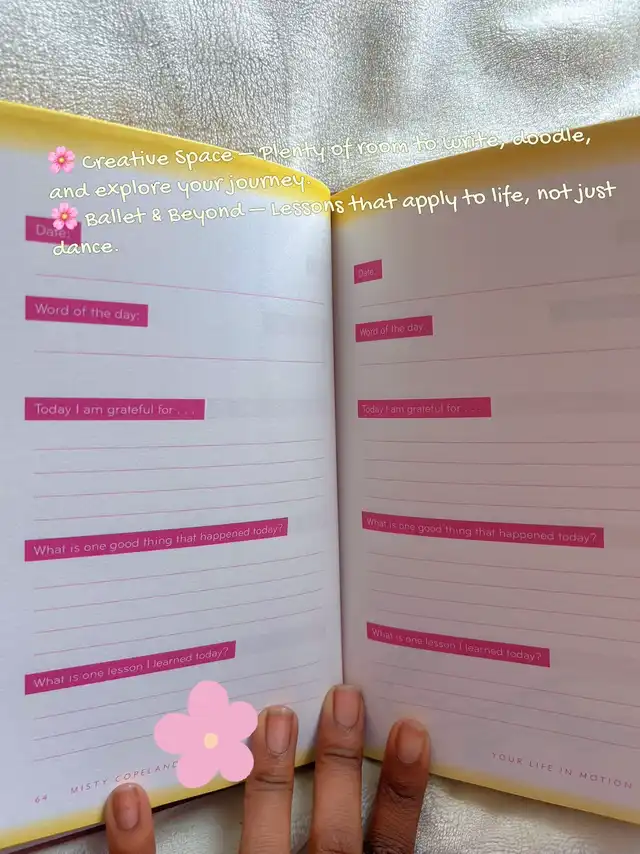 🌸 Creative Space — Plenty of room to write, doodle,
and explore your journey.
🌸 Ballet & Beyond — Lessons that apply to life, not just
dance.
Date:
Word of the day:
Today I am grateful for . . .
What is one good thing that happened today?
What is one lesson I learned today?
64 MISTY COPELAND
Date:
Word of the day:
Today I am grateful for . . .
What is one good thing that happened today?
What is one lesson I learned today?
YOUR LIFE IN MOTION